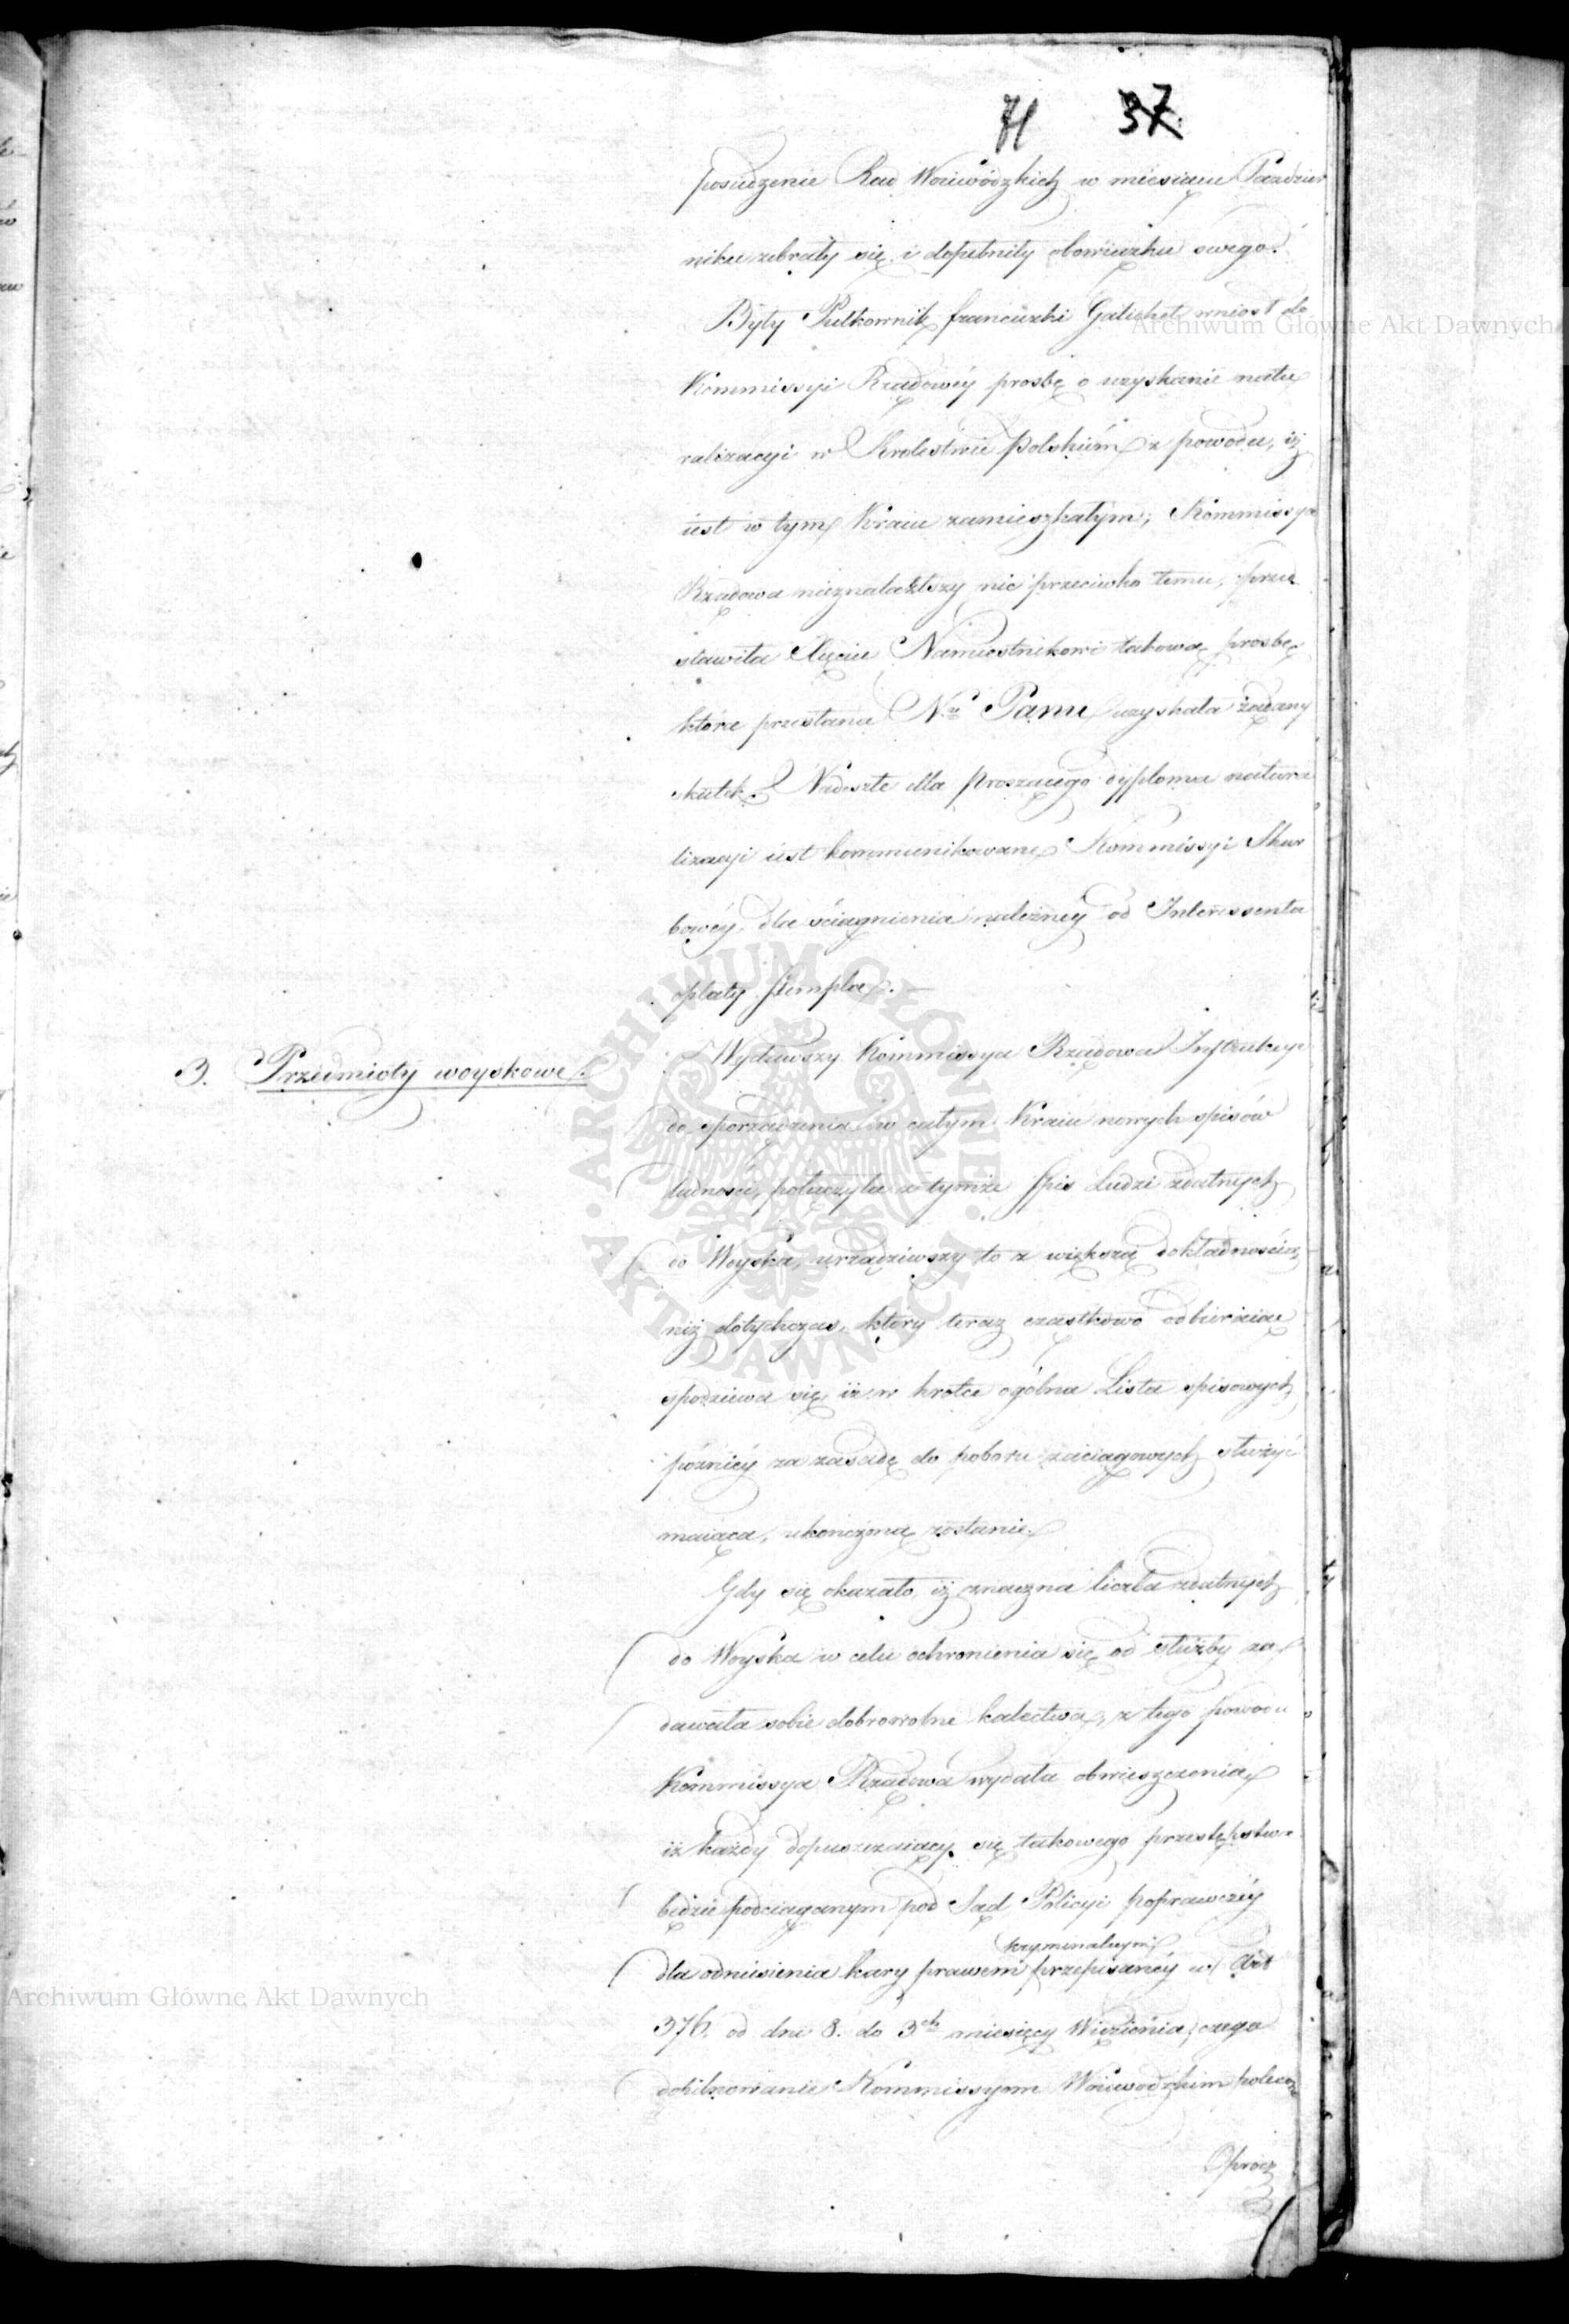 71 37
posiedzenie Rad Woiewódzkich w miesiącu Paździer
niku zebrały się i dopełniły obowiązku swego.
Były Pułkownik francuzki Galichet wniosł do
Kommissyi Rządowéy prosbę o uzyskanie natu
ralizacyi w Krolestwie Polskiém z powodu, iż
iest w tym Kraiu zamieszkałym; Kommissya
Rządowa nieznalazłszy nic przeciwko temu, przed
stawiła Xięciu Namiestnikowi takową prosbę
która przesłana N.mu Panu uzyskała żądany
skutek. Nadeszłe dla proszącego dyploma natura
lizacyi iest kommunikowane Kommissyi Skar
bowéy, dla ściągnienia należnéy od Interessenta
opłaty stempla.
3. Przedmioty woyskowe.
Wydawszy Kommissya Rządowa Instrukcye
do sporządzenia w całym Kraiu nowych spisów
ludności, połączyła z tymże spis Ludzi zdatnych
do Woyska, urządziwszy to z większą dokładnością
niż dotychczas, który teraz cząstkowo odbieraiąc
spodziewa się, iż w krotce ogólna Lista spisowych
pózniéy za zasadę do poboru zaciągowych służyć
maiąca, ukończoną zostanie.
Gdy się okazało, iż znaczna liczba zdatnych
do Woyska w celu ochronienia się od służby za
dawała sobie dobrowolne kalectwa, z tego powodu
Kommissya Rządowa wydała obwieszczenia,
iż każdy dopuszczaiący się takowego przestępstwa
będzie podciąganym pod Sąd Policyi poprawczéy
kryminalnym
dla odniesienia kary prawem przepisanéy w Art
376. od dni 8. do 3ch miesięcy Więzienia, czego
dopilnowanie Kommissyom Woiewodzkim polecono
Oprócz
Archiwum Główne Akt Dawnych
Archiwum Główne Akt Dawnych
· ARCHIWUM GŁÓWNE · AKT DAWNYCH